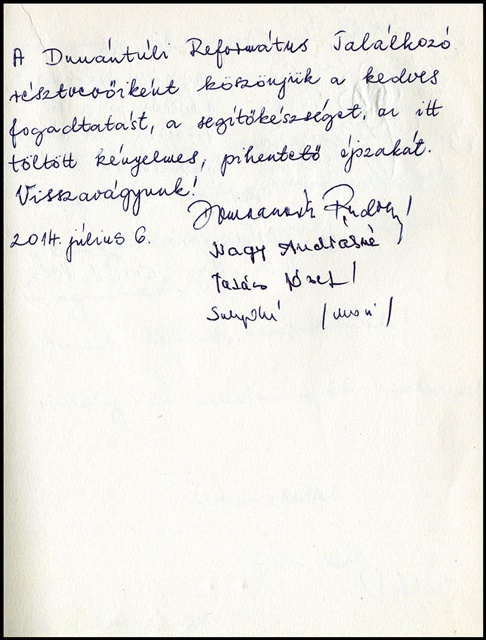 A Dunántúli Református Találkozó
résztvevőiként köszönjük a kedves
fogadtatást, a segítőkészséget, az itt
töltött kényelmes, pihentető éjszakát.
Visszavágyunk!
2014. július 6.
Nagy Andrásné